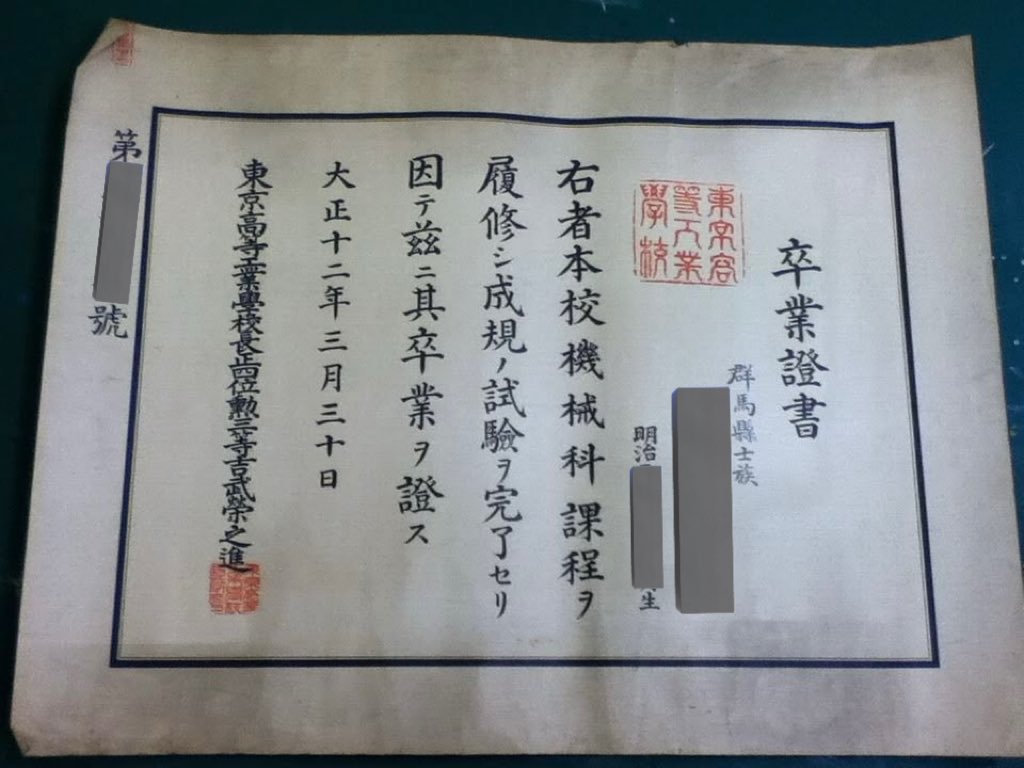 卒業證書
群馬縣士族
明治
生
東京高
等工業
學校
右者本校機械科課程ヲ
履修シ成規ノ試驗ヲ完了セリ
因テ茲ニ其卒業ヲ證ス
大正十二年三月三十日
東京高等工業學校長正四位勲三等吉武榮之進
第
號